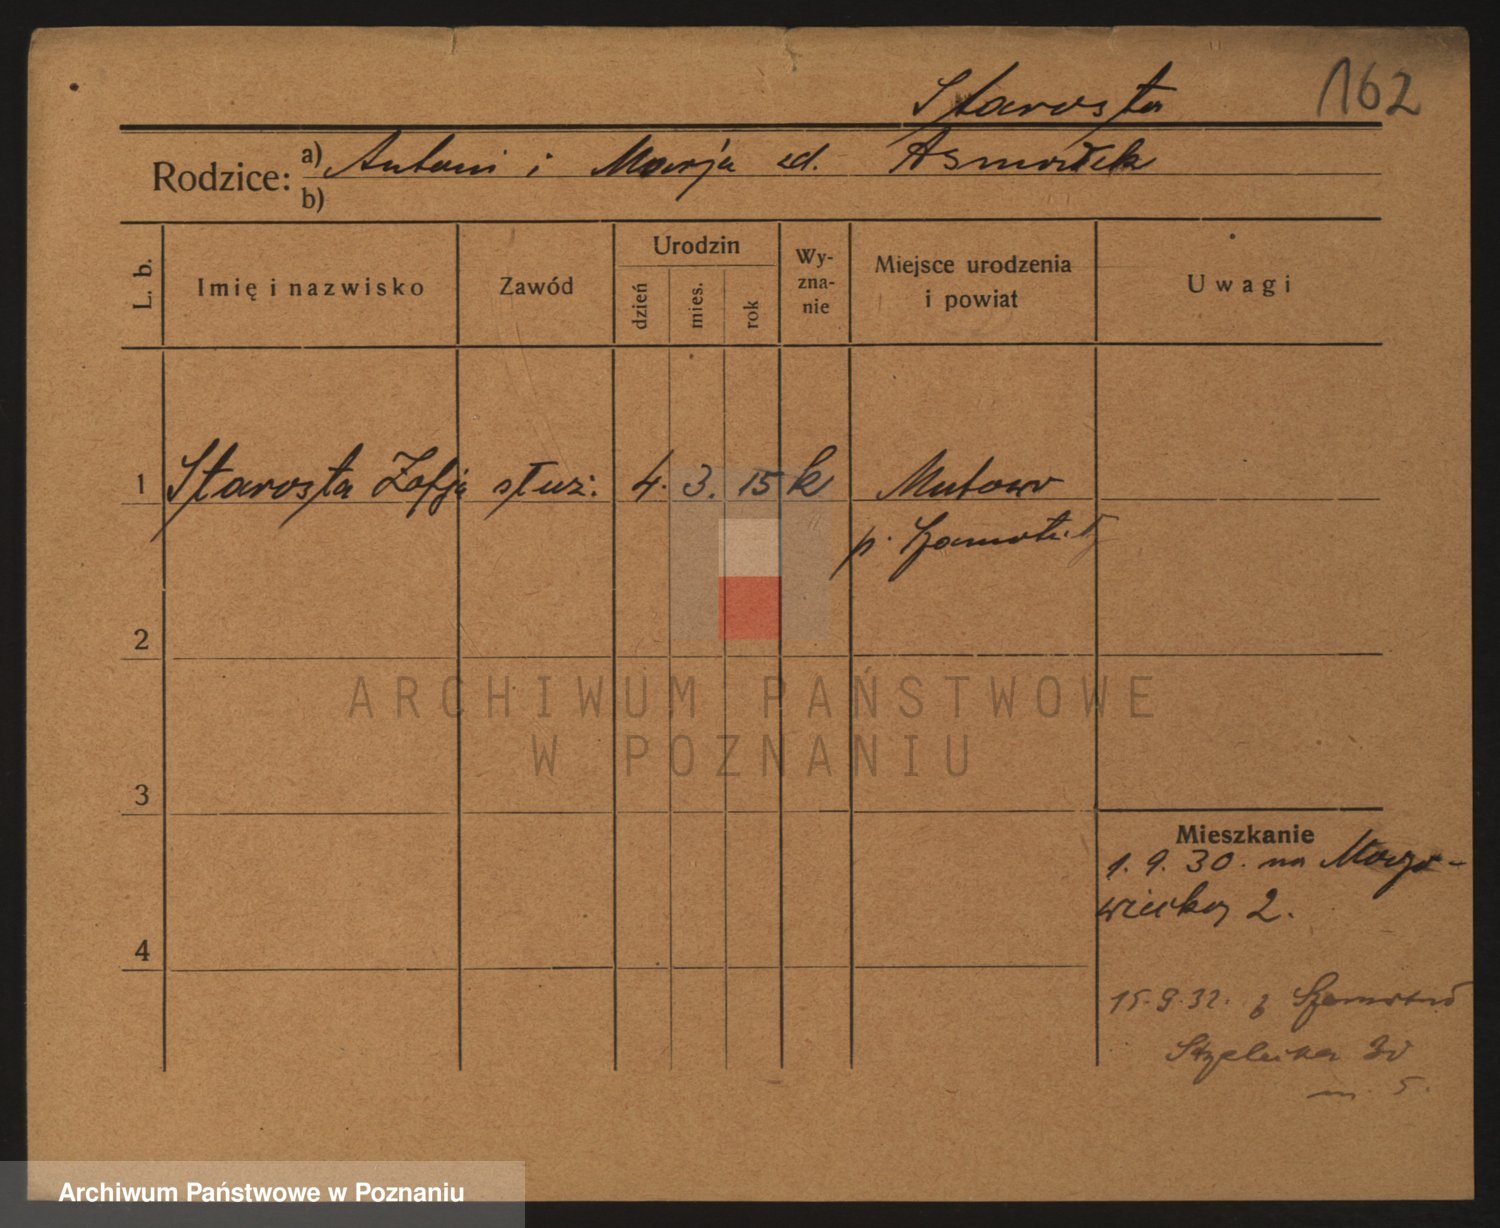 162
Starosta
Rodzice: a) Antoni i Marja zd.
b)
L. b.
Imię i nazwisko
Zawód
Urodzin
dzień
mies.
rok
Wy-
zna-
nie
Miejsce urodzenia
i powiat
Uwagi
1 Starosta Zofja służ. 4. 3. 15 k Mutowo
p. Szamotuły
2
ARCHIWUM PAŃSTWOWE
W POZNANIU
3
Mieszkanie
1. 9. 30. na Mazo-
wiecką 2.
4
15.9.32. z
Strzelecka
m. 5.
Archiwum Państwowe w Poznaniu